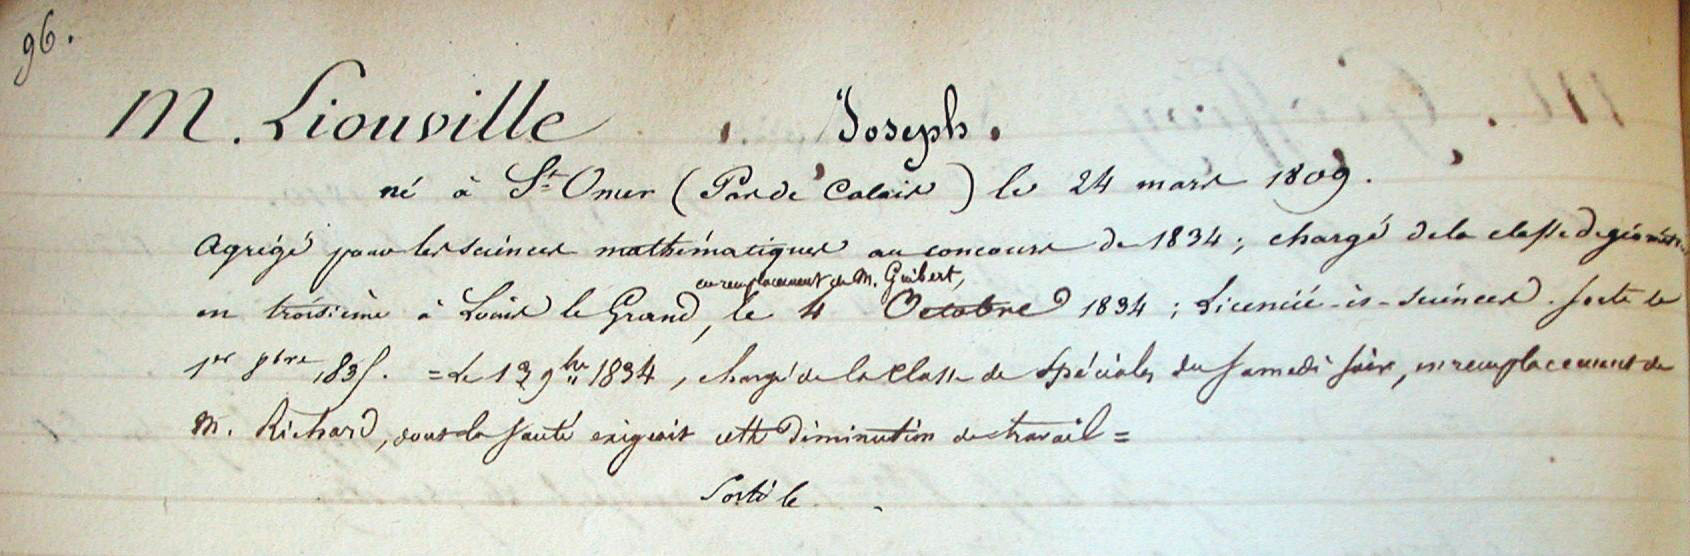 96.
M. Liouville, Joseph.
né à St Omer (Pas de Calais) le 24 mars 1809.
Agrégé pour les sciences mathématiques au concours de 1834; chargé de la classe de géométrie
en remplacement de M. Guibert,
en troisième à Louis le Grand, le 4 Octobre 1834; Licencié-ès-sciences. Sorti le
1er 8bre 1835. = Le 13 9bre 1834, chargé de la classe de Spéciales du Samedi soir, en remplacement de
M. Richard, dont la santé exigeait cette diminution de travail =
Sorti le .